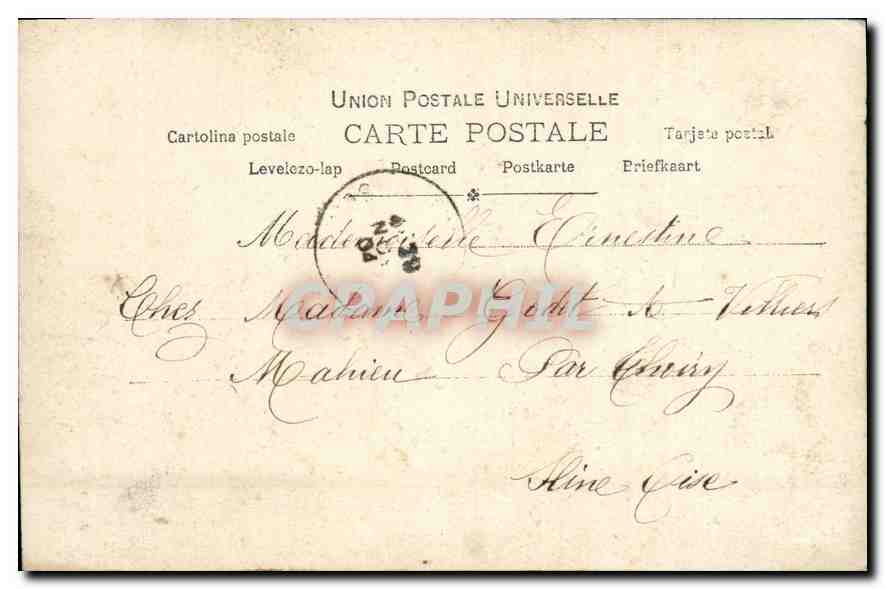 UNION POSTALE UNIVERSELLE
Cartolina postale CARTE POSTALE Tarjeta postal
Levelezo-lap Postcard Postkarte Briefkaart
Mademoiselle Ernestine
Chez Madame Godet A Villiers
CPAPHIL
Mahieu Par Thoiry
Seine Oise